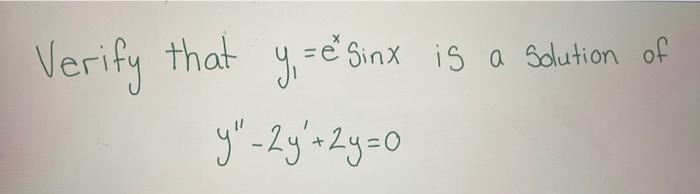 Verify that y₁ = eˣ Sinx is a Solution of
y'' - 2y' + 2y = 0